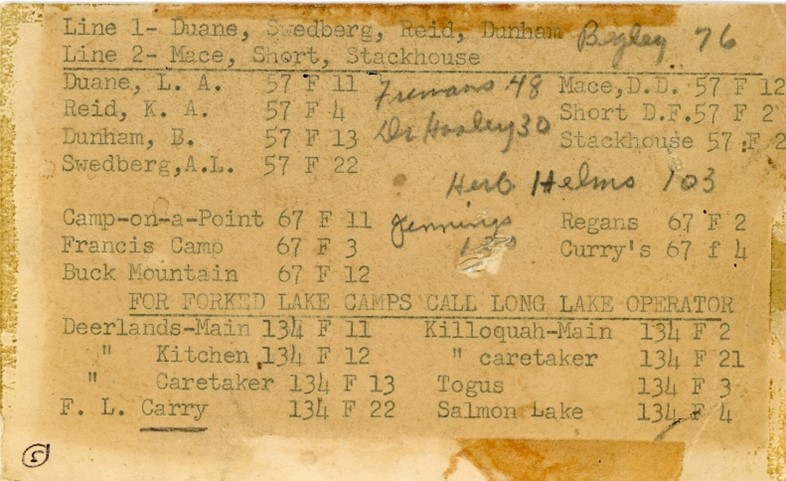 Line 1- Duane, Swedberg, Reid, Dunham Begley 76
Line 2- Mace, Short, Stackhouse
Duane, L. A. 57 F 11 48 Mace,D.D. 57 F 12
Reid, K. A. 57 F 4 Short D.F.57 F 2
Dunham, B. 57 F 13 Dr Hosley 30 Stackhouse 57 F 2
Swedberg,A.L. 57 F 22
Herb Helms 103
Camp-on-a-Point 67 F 11 Jennings Regans 67 F 2
Francis Camp 67 F 3 Curry's 67 f 4
Buck Mountain 67 F 12
FOR FORKED LAKE CAMPS CALL LONG LAKE OPERATOR
Deerlands-Main 134 F 11 Killoquah-Main 134 F 2
" Kitchen 134 F 12 " caretaker 134 F 21
" Caretaker 134 F 13 Togus 134 F 3
F. L. Carry 134 F 22 Salmon Lake 134 F 4
5